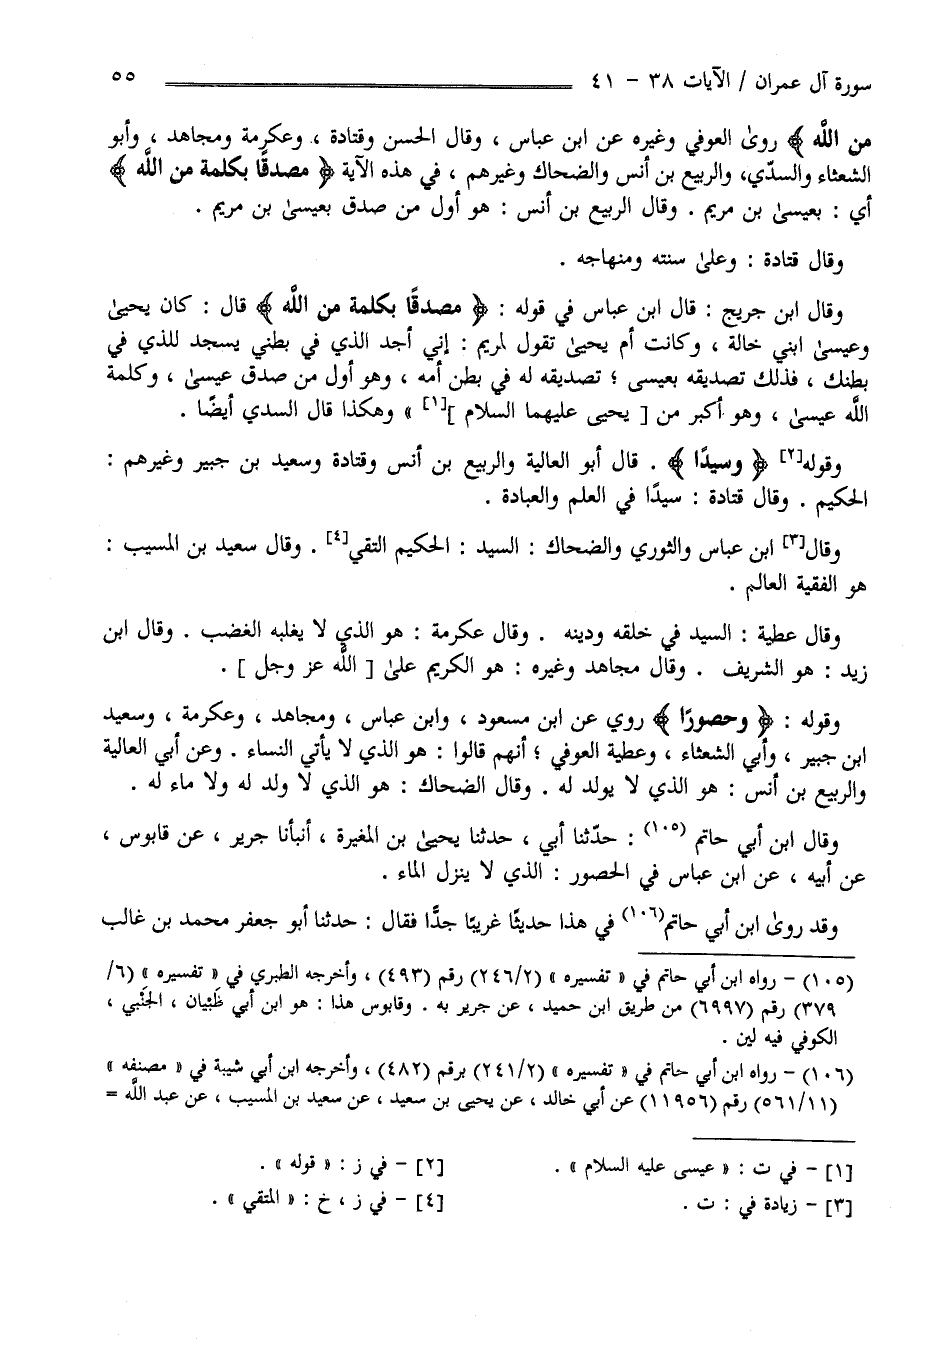 سورة آل عمران / الآيات ٣٨ - ٤١ ٥٥
من اللَّه ﴾ روىٰ العوفي وغيره عن ابن عباس ، وقال الحسن وقتادة ، وعكرمة ومجاهد ، وأبو
الشعثاء والسدّي، والربيع بن أنس والضحاك وغيرهم ، في هذه الآية ﴿ مصدقًا بكلمة من اللَّه ﴾
أي : بعيسىٰ بن مريم . وقال الربيع بن أنس : هو أول من صدق بعيسىٰ بن مريم .
وقال قتادة : وعلىٰ سنته ومنهاجه .
وقال ابن جريج : قال ابن عباس في قوله : ﴿ مصدقًا بكلمة من اللَّه ﴾ قال : كان يحيىٰ
وعيسىٰ ابني خالة ، وكانت أم يحيىٰ تقول لمريم : إني أجد الذي في بطني يسجد للذي في
بطنك ، فذلك تصديقه بعيسى ؛ تصديقه له في بطن أمه ، وهو أول من صدق عيسىٰ ، وكلمة
اللَّه عيسىٰ ، وهو أكبر من [ يحيى عليهما السلام ][١] » وهكذا قال السدي أيضًا .
وقوله[٢] ﴿ وسيدًا ﴾ . قال أبو العالية والربيع بن أنس وقتادة وسعيد بن جبير وغيرهم :
الحكيم . وقال قتادة : سيدًا في العلم والعبادة .
وقال[٣] ابن عباس والثوري والضحاك : السيد : الحكيم التقي[٤] . وقال سعيد بن المسيب :
هو الفقية العالم .
وقال عطية : السيد في خلقه ودينه . وقال عكرمة : هو الذي لا يغلبه الغضب . وقال ابن
زيد : هو الشريف . وقال مجاهد وغيره : هو الكريم علىٰ [ اللَّه عز وجل ] .
وقوله : ﴿ وحصورًا ﴾ روي عن ابن مسعود ، وابن عباس ، ومجاهد ، وعكرمة ، وسعيد
ابن جبير ، وأبي الشعثاء ، وعطية العوفي ؛ أنهم قالوا : هو الذي لا يأتي النساء . وعن أبي العالية
والربيع بن أنس : هو الذي لا يولد له . وقال الضحاك : هو الذي لا ولد له ولا ماء له .
وقال ابن أبي حاتم (١٠٥) : حدّثنا أبي ، حدثنا يحيىٰ بن المغيرة ، أنبأنا جرير ، عن قابوس ،
عن أبيه ، عن ابن عباس في الحصور : الذي لا ينزل الماء .
وقد روىٰ ابن أبي حاتم(١٠٦) في هذا حديثًا غريبًا جدًّا فقال : حدثنا أبو جعفر محمد بن غالب
(١٠٥) - رواه ابن أبي حاتم في « تفسيره » (٢٤٦/٢) رقم (٤٩٣) ، وأخرجه الطبري في « تفسيره » (٦/
٣٧٩) رقم (٦٩٩٧) من طريق ابن حميد ، عن جرير به . وقابوس هذا : هو ابن أبي ظَبْيان ، الجَنْبي ،
الكوفي فيه لين .
(١٠٦) - رواه ابن أبي حاتم في « تفسيره » (٢٤١/٢) برقم (٤٨٢) ، وأخرجه ابن أبي شيبة في « مصنفه »
(٥٦١/١١) رقم (١١٩٥٦) عن أبي خالد ، عن يحيى بن سعيد ، عن سعيد بن المسيب ، عن عبد اللَّه =
[١] - في ت : « عيسى عليه السلام » . [٢] - في ز : « قوله » .
[٣] - زيادة في : ت . [٤] - في ز ، خ : « المتقي » .